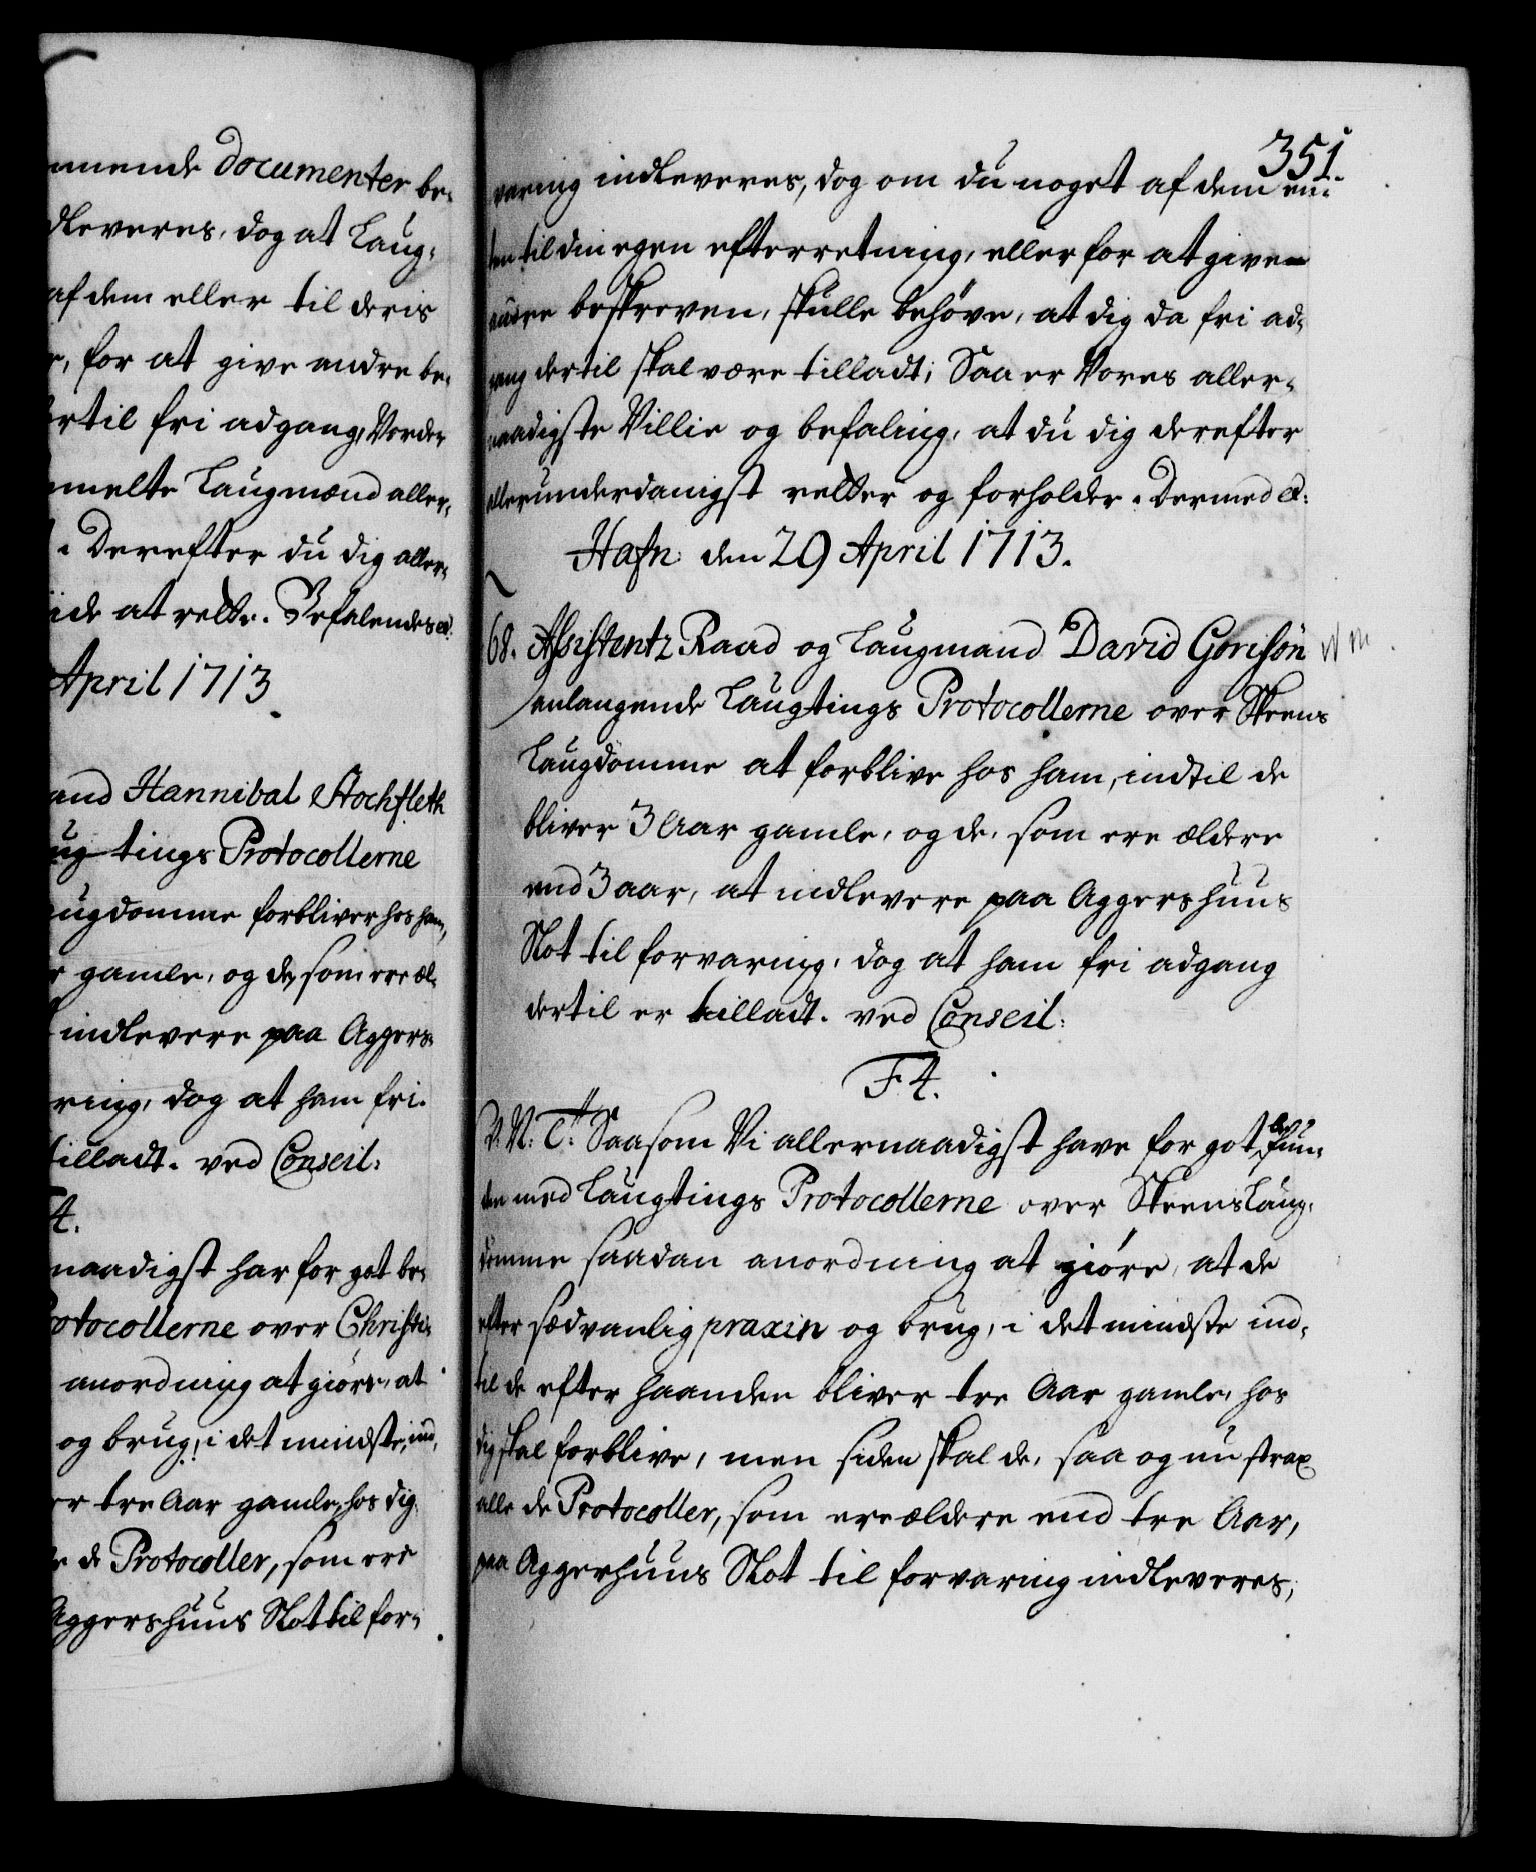 mende Documenter be-
dleveres, dog at Laug-
af dem eller til deris
, for at give andre be-
ertil fri adgang, Vorder
melte Laugmænd aller-
. Derefter du dig aller-
iide at rette. Befalendes etc:
April 1713.
and Hannibal Stochfleth
ug tings Protocollerne
augdomme forbliver hos ham,
r gamle, og de, som ere æl-
indlevere paa Aggers-
ring, dog at ham fri-
tilladt. ved Conseil:
4.
naadigst har for got be-
rotocollerne over Christi-
anordning at giøre, at
og brug, i det mindste, ind-
er tre Aar gamle, hos dig
e de Protocoller, som ere
Aggershuus Slot til for-
351.
varing indleveres, dog om du noget af dem en-
ten til din egen efterretning, eller for at give
andre beskreven, skulle behöve, at dig da fri ad-
gang dertil skal være tilladt; Saa er Vores aller-
naadigste Villie og befaling, at du dig derefter
allerunderdanigst retter og forholder. Dermed etc:
Hafn: den 29 April 1713.
68. Assistentz Raad og Laugmand David Gönisön
anlangende Laugtings Protocollerne over Skeens
Laugdomme at forblive hos ham, indtil de
bliver 3 Aar gamle, og de, som ere ældere
end 3 aar, at indlevere paa Aggershuus
Slot til forvaring, dog at ham fri adgang
dertil er tilladt. ved Conseil:
F 4.
V: N: T: Saasom Vi allernaadigst have for got befun-
den med Laugtings Protocollerne over Skeens Laug-
domme saadan anordning at giöre, at de
efter sædvanlig praxin og brug, i det mindste ind-
til de efter haanden bliver tre Aar gamle, hos
dig skal forblive, men siden skal de, saa og nu strax
alle de Protocoller, som ere ældere end tre Aar,
paa Aggerhuus Slot til forvaring indleveres,